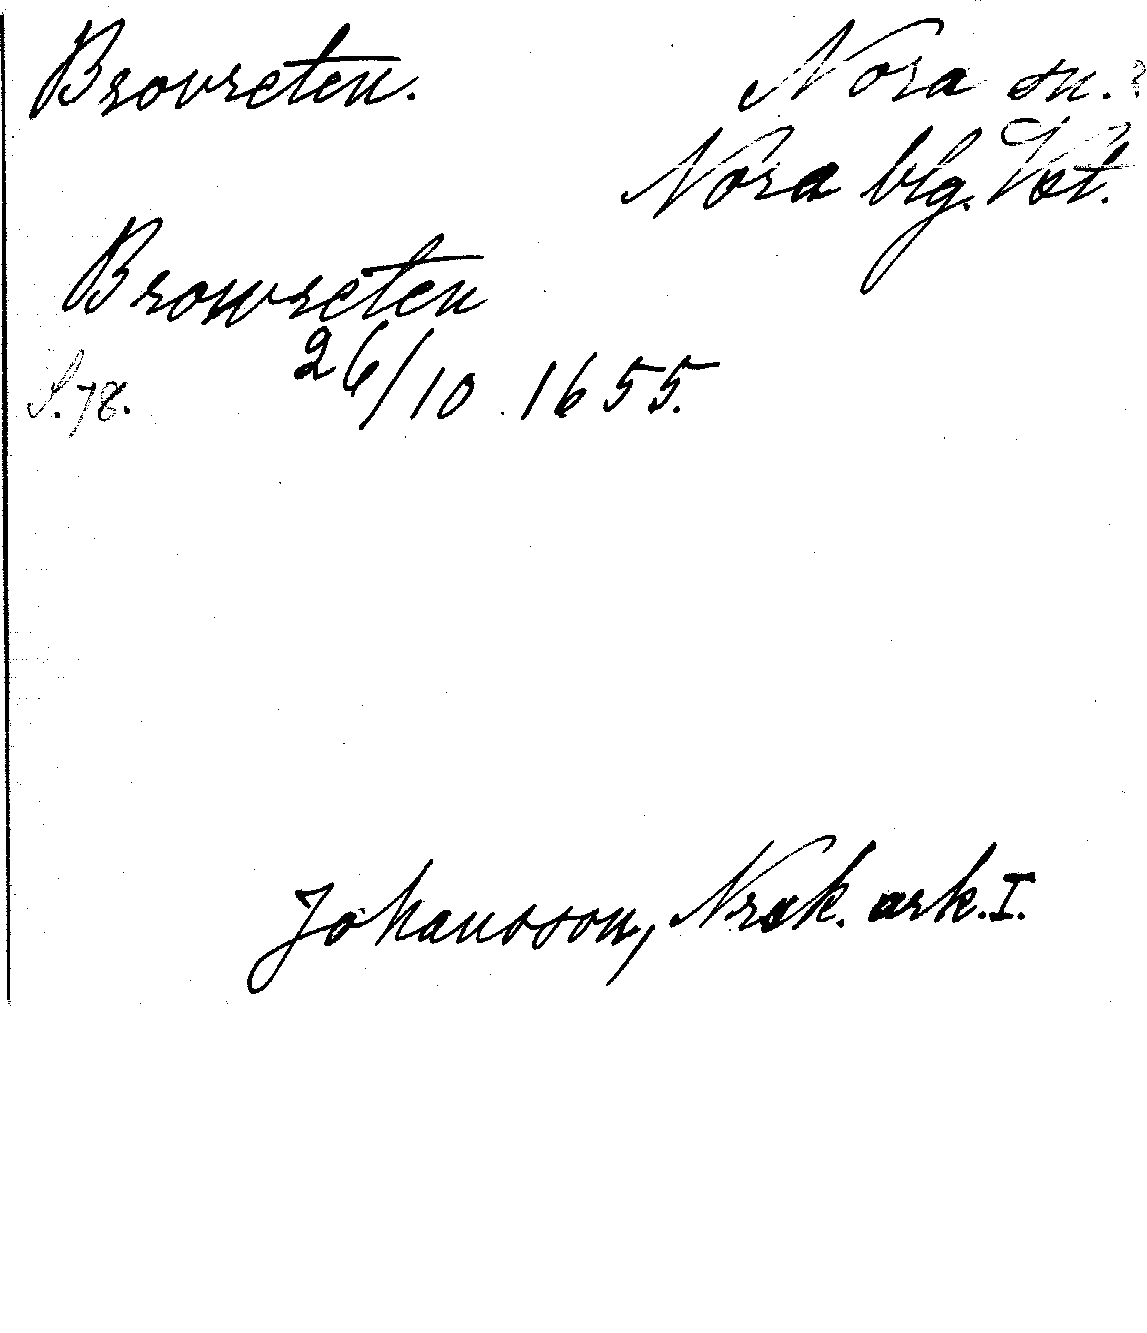 Brovreten. Nora sn.?
Nora blg. Vst.
Browreten
S. 78. 26/10 1655.
Johansson, Nrsk. ark. I.